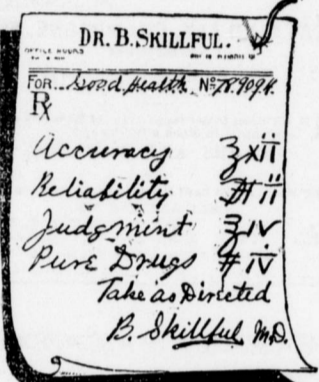 DR. B. SKILLFUL.
OFFICE HOURS
FOR Good Health. No 78.909X.
℞
Accuracy ℥xii
Reliability ii
Judgmint ℥iv
Pure Drugs # iv
Take as Directed
B. Skillful M.D.